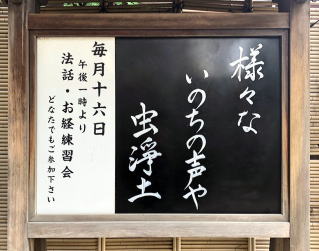 様々な
いのちの声や
虫浄土
毎月十六日
午後一時より
法話・お経練習会
どなたでもご参加下さい